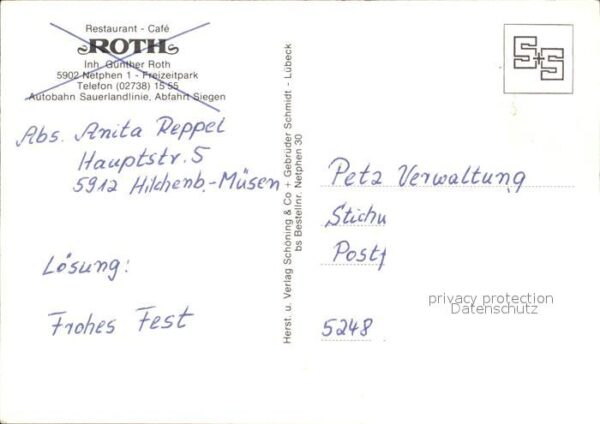 Restaurant - Café
ROTH
Inh. Günther Roth
5902 Netphen 1 - Freizeitpark
Telefon (02738) 15 55
Autobahn Sauerlandlinie, Abfahrt Siegen
Abs. Anita Reppel
Hauptstr. 5
5912 Hilchenb.-Müsen
Lösung:
Frohes Fest
Herst. u. Verlag Schöning & Co + Gebrüder Schmidt - Lübeck
bs Bestellnr. Netphen 30
S+S
Petz Verwaltung
Stichw
Postf
5248
privacy protection
Datenschutz